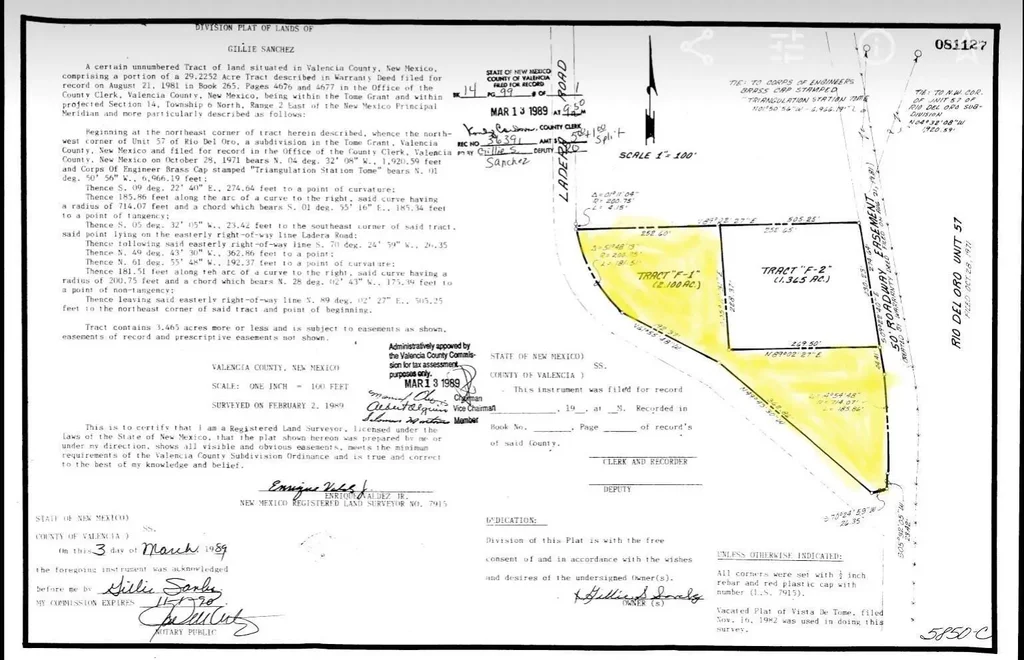 DIVISION PLAT OF LANDS OF
GILLIE SANCHEZ
A certain unnumbered Tract of land situated in Valencia County, New Mexico,
comprising a portion of a 29.2252 Acre Tract described in Warranty Deed filed for
record on August 21, 1981 in Book 265, Pages 4676 and 4677 in the Office of the
County Clerk, Valencia County, New Mexico, being within the Tome Grant and within
projected Section 14, Township 6 North, Range 2 East of the New Mexico Principal
Meridian and more particularly described as follows:
Beginning at the northeast corner of tract herein described, whence the north-
west corner of Unit 57 of Rio Del Oro, a subdivision in the Tome Grant, Valencia
County, New Mexico and filed for record in the Office of the County Clerk, Valencia
County, New Mexico on October 28, 1971 bears N. 04 deg. 32' 08" W., 1,920.59 feet
and Corps Of Engineer Brass Cap stamped "Triangulation Station Tome" bears N. 01
deg. 50' 56" W., 6,966.19 feet;
Thence S. 09 deg. 22' 40" E., 274.64 feet to a point of curvature;
Thence 185.86 feet along the arc of a curve to the right, said curve having
a radius of 714.07 feet and a chord which bears S. 01 deg. 55' 16" E., 185.34 feet
to a point of tangency;
Thence S. 05 deg. 32' 05" W., 23.42 feet to the southeast corner of said tract,
said point lying on the easterly right-of-way line Ladera Road;
Thence following said easterly right-of-way line S. 70 deg. 24' 59" W., 26.35
Thence N. 49 deg. 43' 30" W., 362.86 feet to a point;
Thence N. 61 deg. 55' 48" W., 192.37 feet to a point of curvature;
Thence 181.51 feet along teh arc of a curve to the right, said curve having a
radius of 200.75 feet and a chord which bears N. 28 deg. 02' 43" W., 175.39 feet to
a point of non-tangency;
Thence leaving said easterly right-of-way line N. 89 deg. 02' 27" E., 505.25
feet to the northeast corner of said tract and point of beginning.
Tract contains 3.465 acres more or less and is subject to easements as shown,
easements of record and prescriptive easements not shown.
VALENCIA COUNTY, NEW MEXICO
SCALE: ONE INCH = 100 FEET
SURVEYED ON FEBRUARY 2, 1989
This is to certify that I am a Registered Land Surveyor, licensed under the
laws of the State of New Mexico, that the plat shown hereon was prepared by me or
under my direction, shows all visible and obvious easements, meets the minimum
requirements of the Valencia County Subdivision Ordinance and is true and correct
to the best of my knowledge and belief.
Enrique Valdez Jr.
ENRIQUE VALDEZ JR.
NEW MEXICO REGISTERED LAND SURVEYOR NO. 7915
STATE OF NEW MEXICO)
SS.
COUNTY OF VALENCIA )
On this 3 day of March 1989
the foregoing instrument was acknowledged
before me by Gillie Sanchez
MY COMMISSION EXPIRES 11-1-90
NOTARY PUBLIC
STATE OF NEW MEXICO
COUNTY OF VALENCIA
FILED FOR RECORD
BK 14 PG 99 # OF 1
MAR 13 1989 AT 9:50 M
COUNTY CLERK
REC NO 36391 AMT $
DEPUTY
Gillie S. Sanchez
Split
Administratively appoved by
the Valencia County Commis-
sion for tax assessment
purposes only.
MAR 13 1989
Chairman
Vice Chairman
Member
STATE OF NEW MEXICO)
SS.
COUNTY OF VALENCIA )
This instrument was filed for record
, 19 , at M. Recorded in
Book No. , Page of record's
of said County.
CLERK AND RECORDER
DEPUTY
DEDICATION:
Division of this Plat is with the free
consent of and in accordance with the wishes
and desires of the undersigned Owner(s).
OWNER (s)
LADERA ROAD
SCALE 1"=100'
081127
TIE TO CORPS OF ENGINEERS
BRASS CAP STAMPED
"TRIANGULATION STATION TOME"
N01°50'56"W - 6,966.19'
TIE TO N.W. COR.
OF UNIT 57 OF
RIO DEL ORO SUB-
DIVISION
N04°32'08"W
1920.59'
R= 200.75'
L= 4.15'
N89°02'27"E 505.25'
252.60'
252.65'
TRACT "F-1"
(2.100 AC.)
TRACT "F-2"
(1.365 AC.)
228.37'
269.50'
N89°02'27"E
192.37'
N61°55'48"W
362.86'
N49°43'30"W
Δ=14°54'48"
R=714.07'
L=185.86'
S70°24'59"W
26.35'
S05°32'05"W
23.42'
50' ROADWAY EASEMENT
RIO DEL ORO UNIT 57
FILED OCT. 28, 1971
UNLESS OTHERWISE INDICATED:
All corners were set with ½ inch
rebar and red plastic cap with
number (L.S. 7915).
Vacated Plat of Vista De Tome, filed
Nov. 16, 1982 was used in doing this
survey.
5850-C